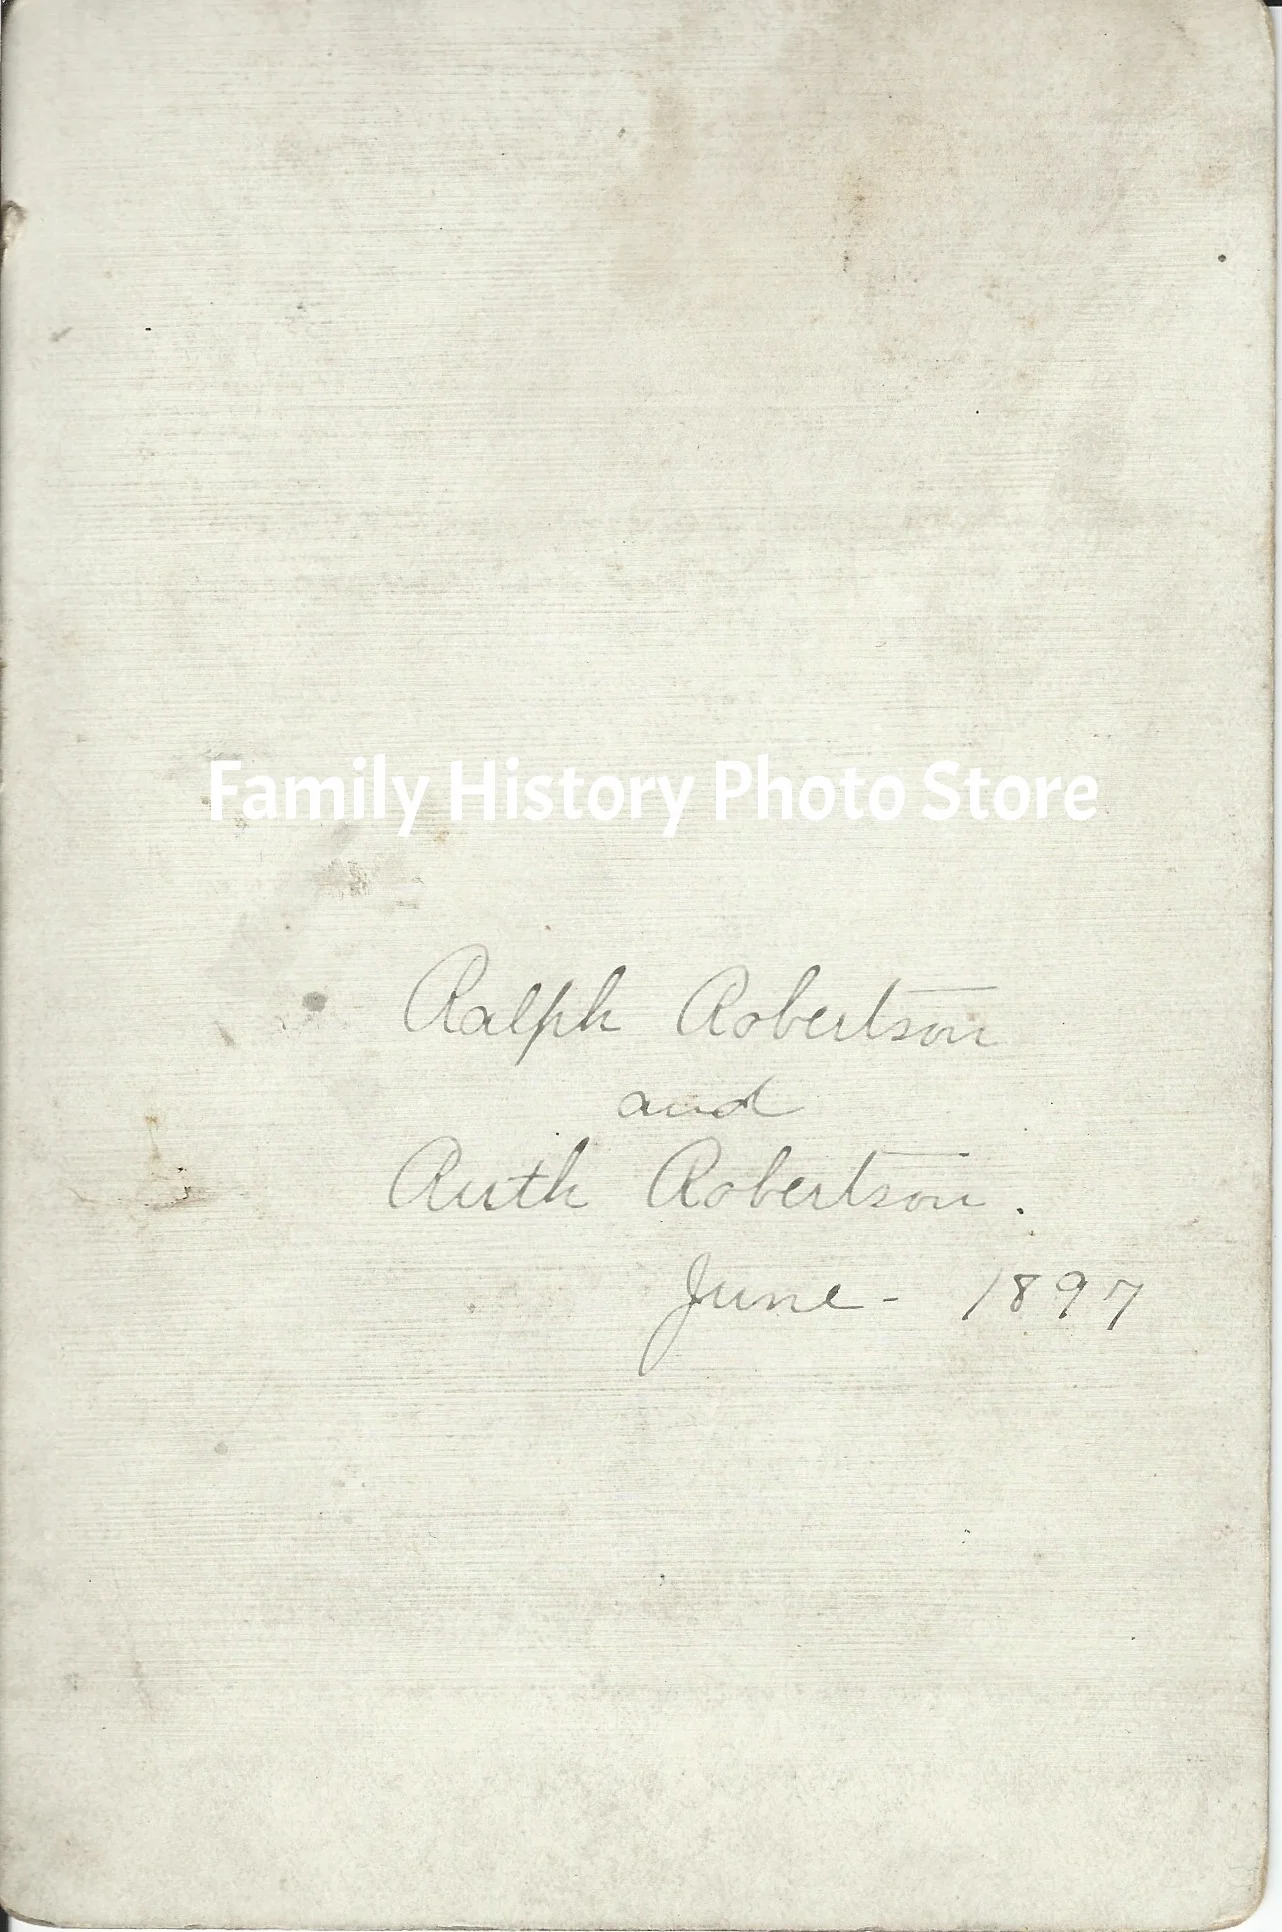 Family History Photo Store
Ralph Robertson
and
Ruth Robertson.
June - 1897